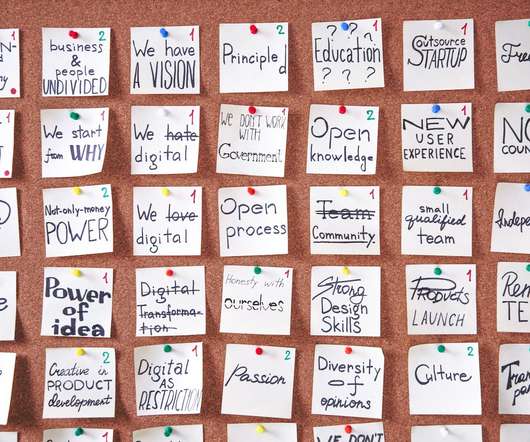 business 2
&
people
UNDIVIDED
We have 1
A VISION
Principled
? ? ? ? 1
Education
? ? ?
Outsource 1
STARTUP
We start 2
from WHY
We hate
digital
We DON'T WORK
WITH
Government
Open 2
knowledge
NEW 1
USER
EXPERIENCE
Not-only-money 2
POWER
We love 1
digital
Open 1
process
Team 1
Community.
small 1
qualified
Team
Power
of
idea
Digital
Transforma-
tion
Honesty with 1
ourselves
Strong
Design
Skills
Products 1
LAUNCH
Creative in 2
PRODUCT
development
Digital 1
AS
RESTRICTION
Passion 2
Diversity
of
opinions
Culture 2
WE DON'T